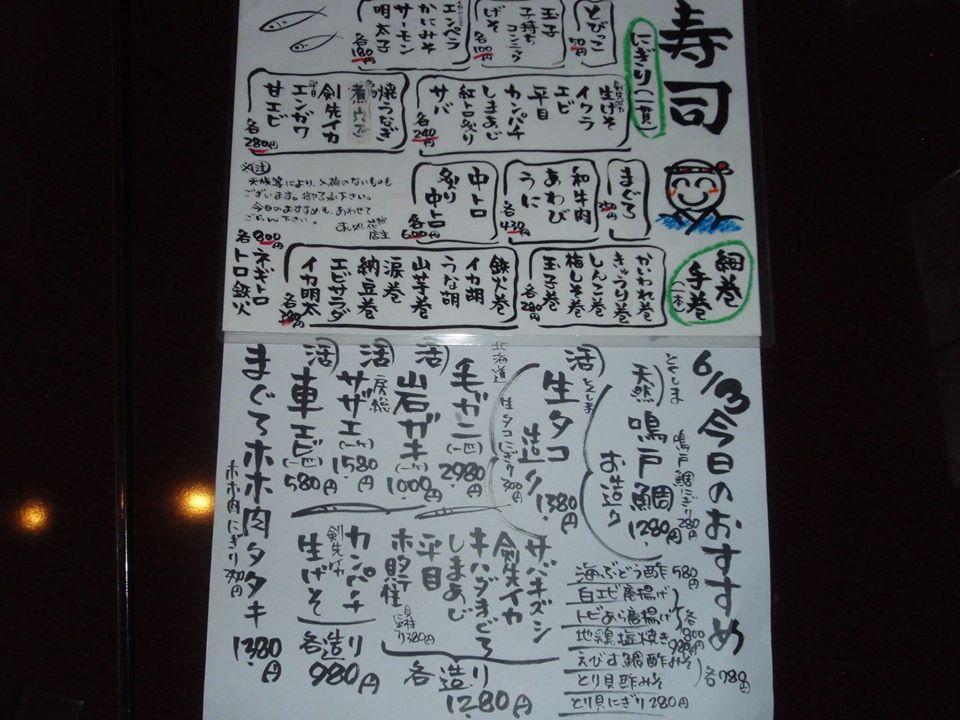 寿司
にぎり(一貫)
とびっこ
50円
玉子
子持ちコンニャク
げそ
各100円
エンペラ
かにみそ
サーモン
明太子
各180円
生げそ
イクラ
エビ
平目
カンパチ
しまあじ
紅トロ炙り
サバ
各240円
焼うなぎ
煮穴子
剣先イカ
エンガワ
甘エビ
各280円
まぐろ
和牛肉
あわび
うに
各430円
中トロ
炙り中トロ
各600円
※注
天候等により、入荷のないものも
ございます。御了承下さい。
今日のおすすめも、あわせて
ごらん下さい。
店主
細巻
手巻
(一本)
かいわれ巻
きゅうり巻
しんこ巻
梅しそ巻
玉子巻
各280円
鉄火巻
イカ胡
うな胡
山芋巻
涙巻
納豆巻
エビサラダ
イカ明太
ネギトロ
トロ鉄火
各800円
6/13 今日のおすすめ
とくしま
天然
鳴戸鯛
お造り
1280円
鳴戸鯛にぎり280円
活
とくしま
生タコ
造り
1380円
生タコにぎり300円
北海道
活
毛ガニ
2980円
岩ガキ
1000円
活
房総
サザエ
1580円
活
車エビ
580円
まぐろホホ肉タタキ
1380円
ホホ肉にぎり380円
海ぶどう酢 580円
白エビ唐揚げ
トビあら唐揚げ
各800円
地鶏塩焼き 980円
えびす鯛酢みそ
とり貝酢みそ
各780円
とり貝にぎり280円
サバキズシ
剣先イカ
キハダまぐろ
しまあじ
平目
ホタテ貝柱
貝柱にぎり380円
各造り
1280円
カンパチ
剣先イカ
生げそ
各造り
980円